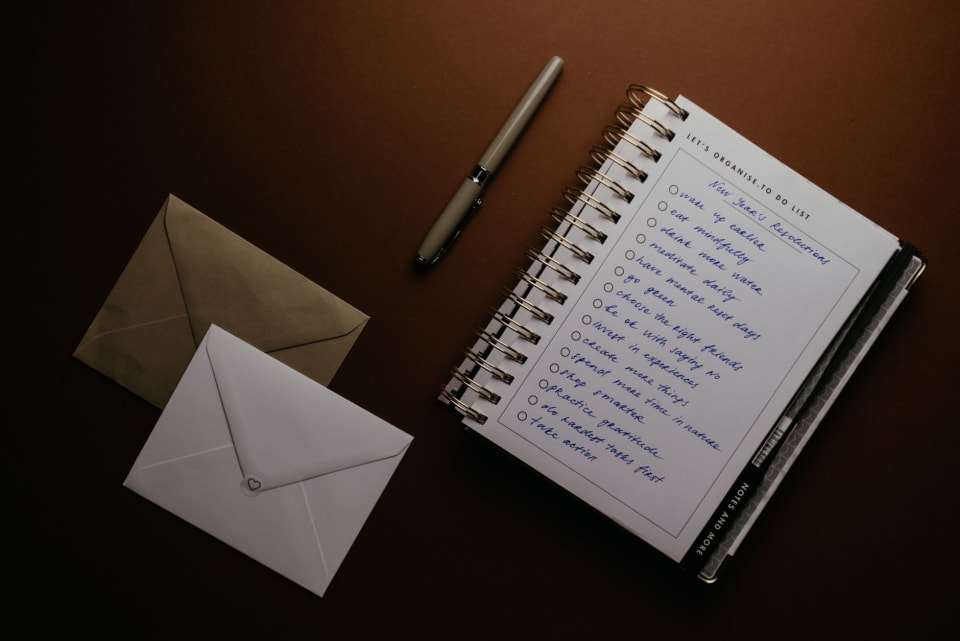 LET'S ORGANISE. TO DO LIST
New Year's Resolutions
wake up earlier
eat mindfully
drink more water
meditate daily
have mental reset days
go green
choose the right friends
be ok with saying NO
invest in experiences
create more things
spend more time in nature
shop smarter
practice gratitude
do hardest tasks first
take action
NOTES AND MORE